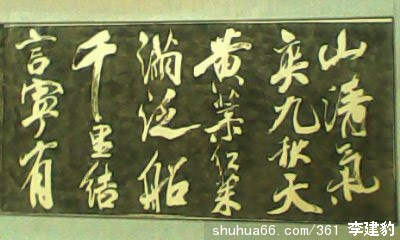 山清氣
爽九秋天
黄菊红茱
滿泛船
千里结
言寧有
shuhua66.com/361 李建豹